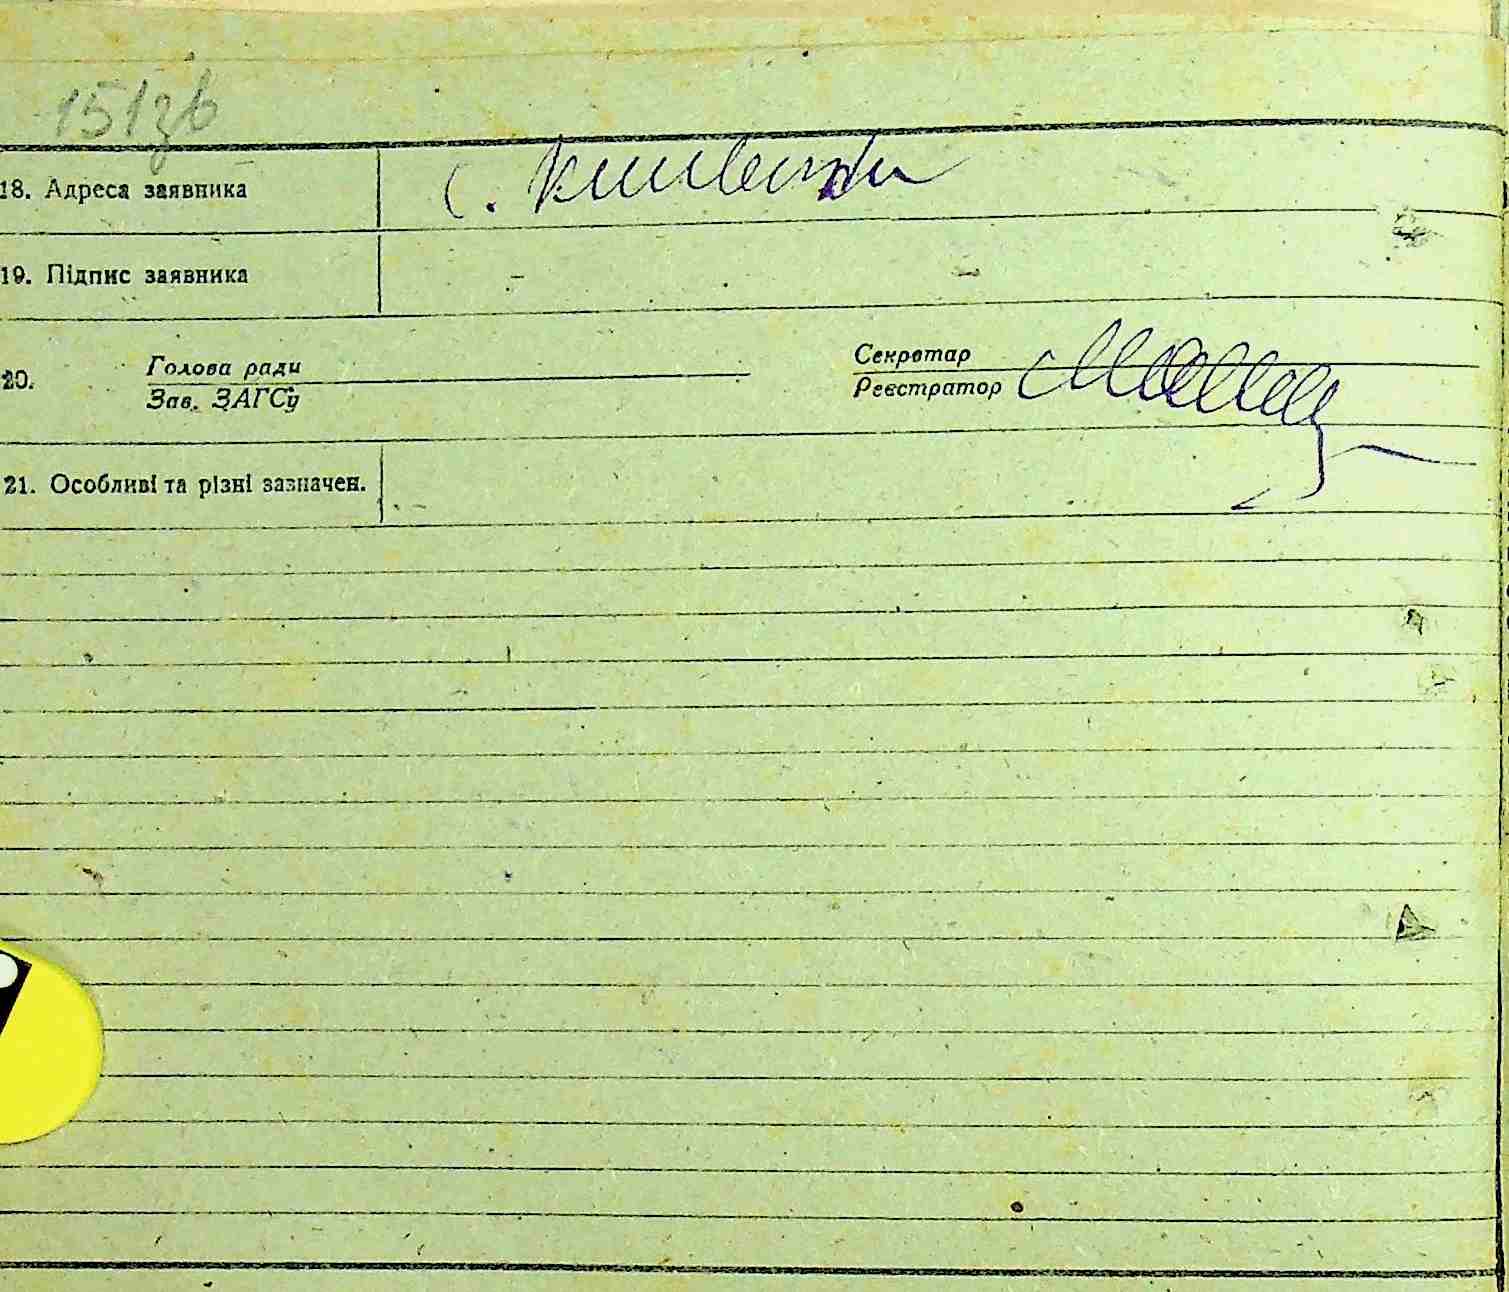 151зв
18. Адреса заявника с.
19. Підпис заявника -
20. Голова ради Секретар
Зав. ЗАГСу Реєстратор
21. Особливі та різні зазначен.